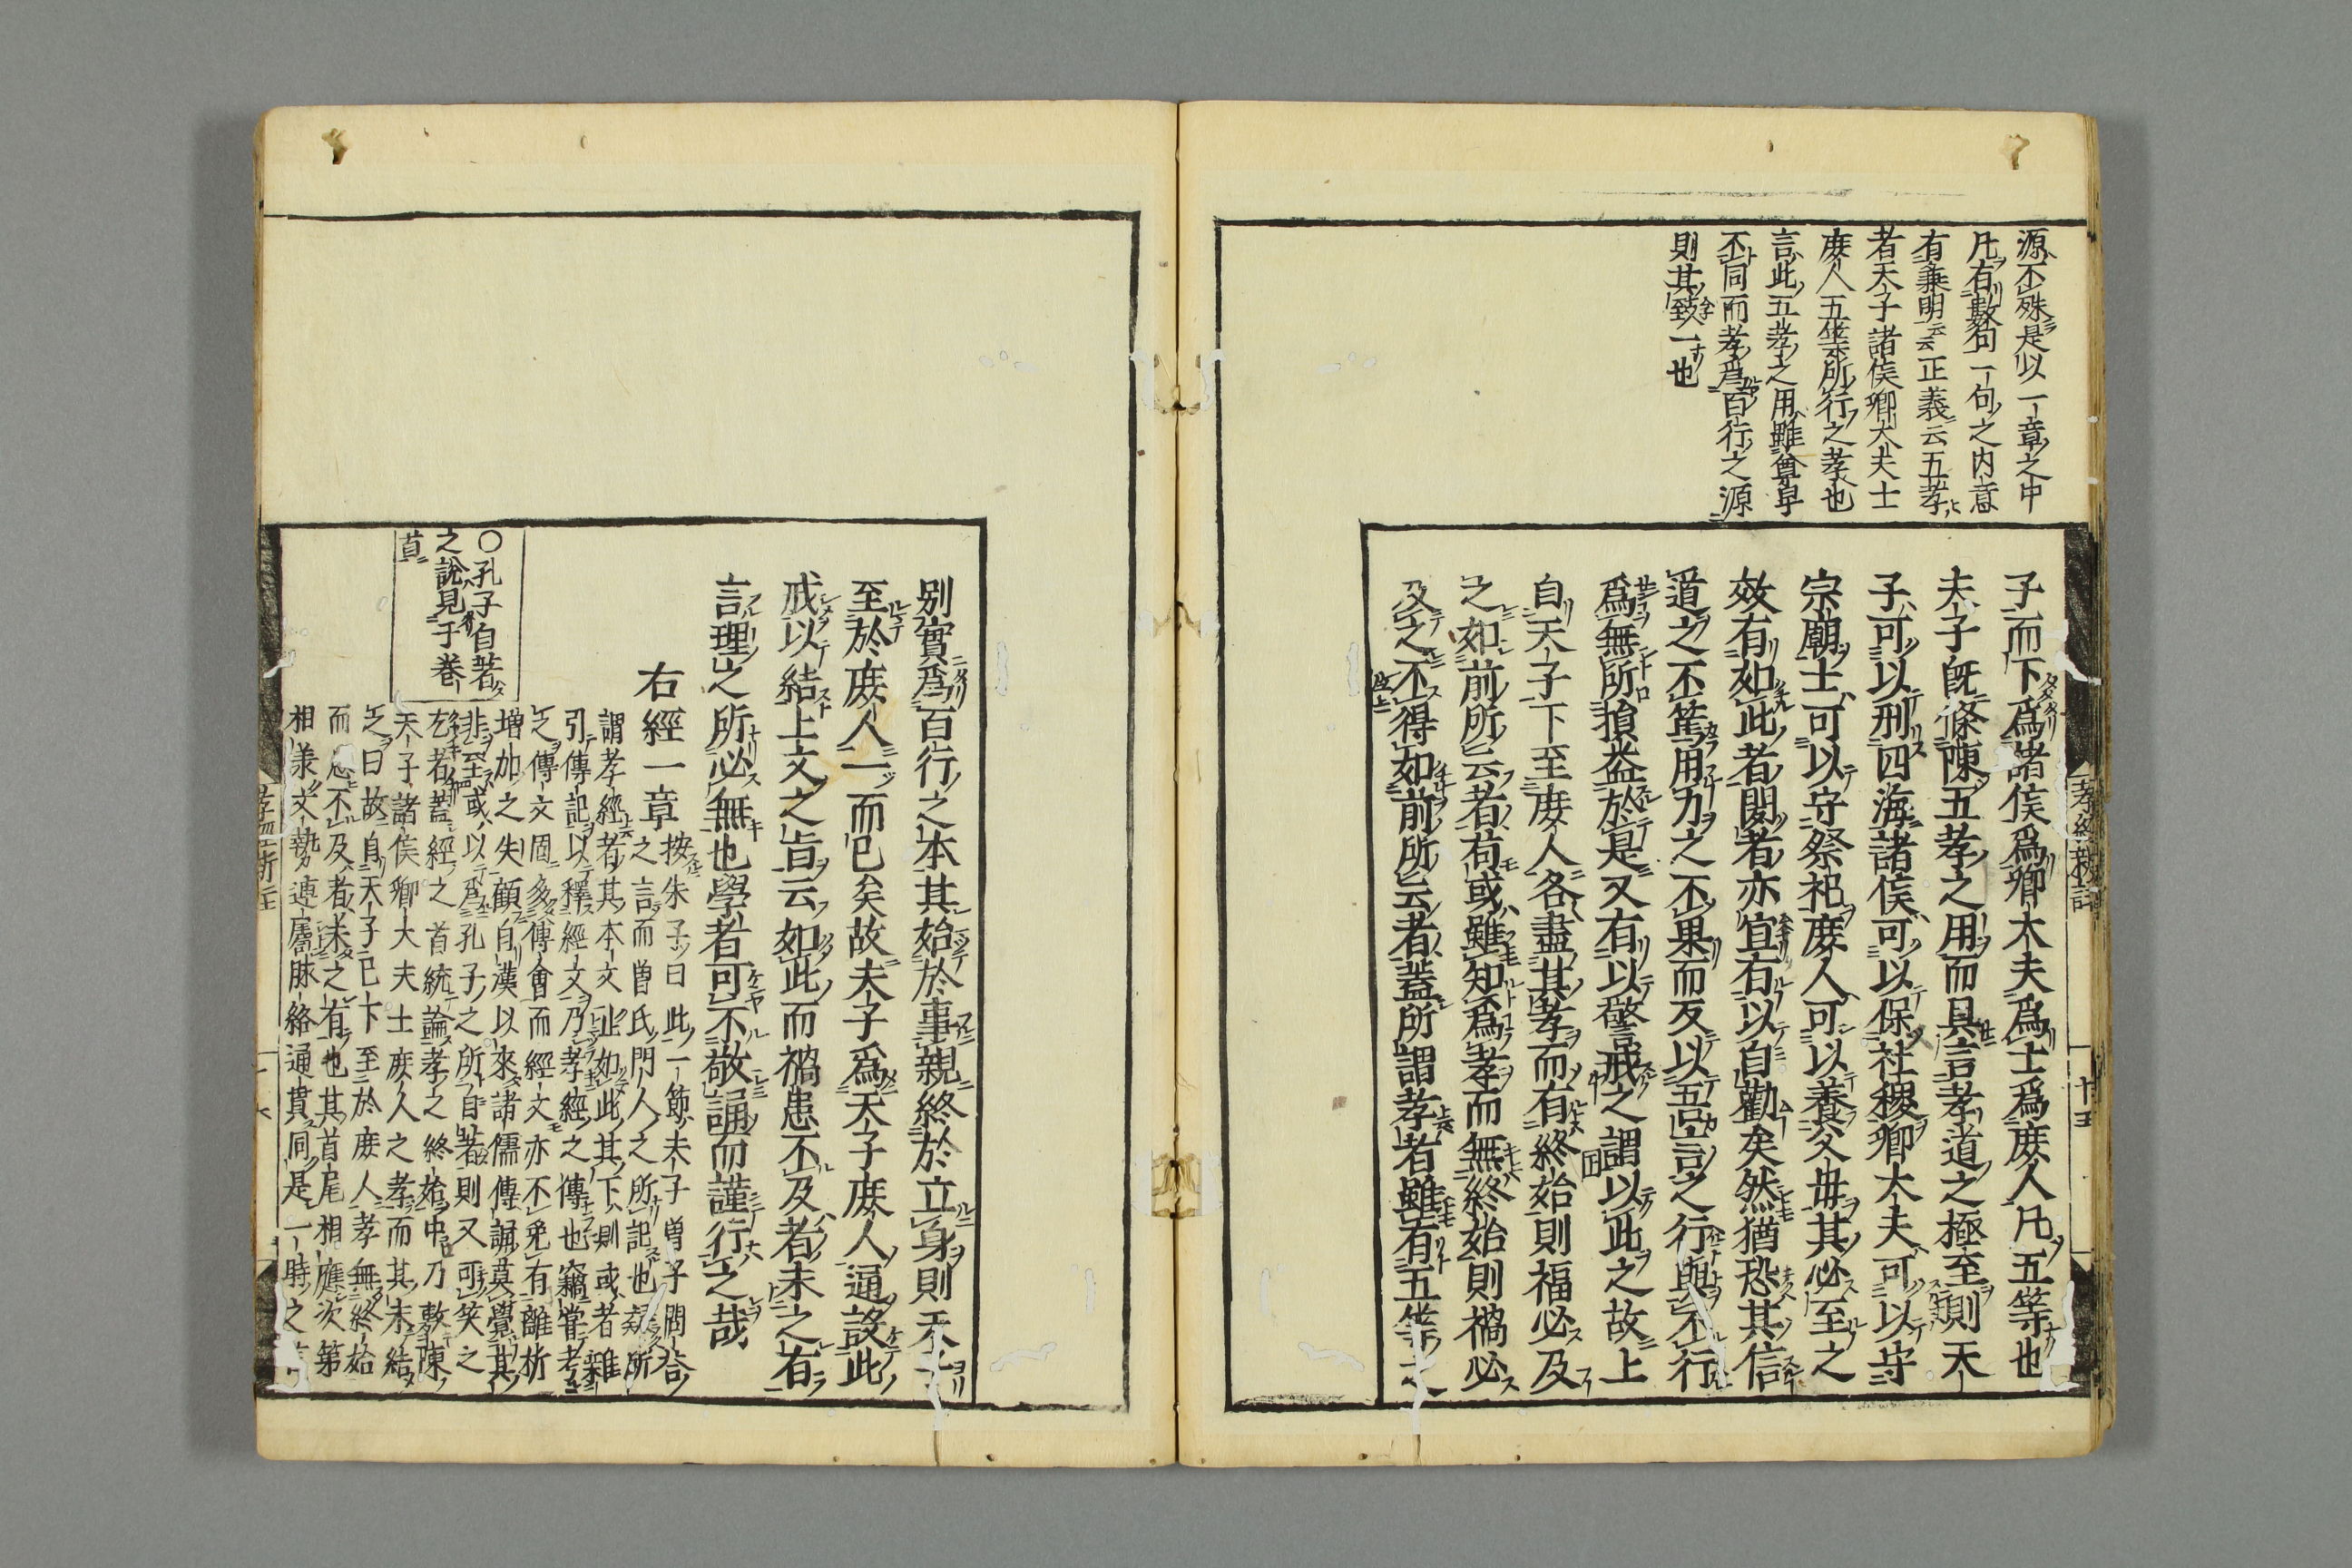 源不殊是以一章之中
凡有數句一句之内意
有兼明云云正義云五孝
者天子諸侯卿大夫士
庶人五等所行之孝也
言此五孝之用雖尊卑
不同而孝爲百行之源
則其致一也
子而下爲諸侯爲卿大夫爲士爲庶人凡五等也
夫子既條陳五孝之用而具言孝道之極至則天
子可以刑四海諸侯可以保社稷卿大夫可以守
宗廟士可以守祭祀庶人可以養父母其必至之
效有如此者閲者亦宜有以自勸矣然猶恐其信
道之不篤用力之不果而反以吾言之行與不行
爲無所損益於是又有以警戒之謂以此之故上
自天子下至庶人各盡其孝而有終始則福必及
之如前所云者苟或雖知爲孝而無終始則禍必
及之不得如前所云者蓋所謂孝者雖有五等之
孝經新註
十五
別實爲百行之本其始於事親終於立身則天子
至於庶人一而已矣故夫子爲天子庶人逼設此
戒以結上文之旨云如此而禍患不及者未之有
言理之所必無也學者可不敬誦而謹行之哉
右經一章
按朱子曰此一節夫子曽子問荅
之言而曽氏門人之所記也疑所
謂孝經者其本文止如此其下則或者雜
引傳記以釋經文乃孝經之傳也竊嘗考
之傳文固多傳會而經文亦不免有離析
増加之失顧自漢以來諸儒傳誦莫覺其
非至或以爲孔子之所自著則又可笑之
尤者蓋經之首統論孝之終始中乃敷陳
天子諸侯卿大夫士庶人之孝而其末結
之曰故自天子已下至於庶人孝無終始
而患不及者未之有也其首尾相應次第
相承文勢連屬脉絡通貫同是一時之
〇孔子自著
之說見于巻
首
孝經新註